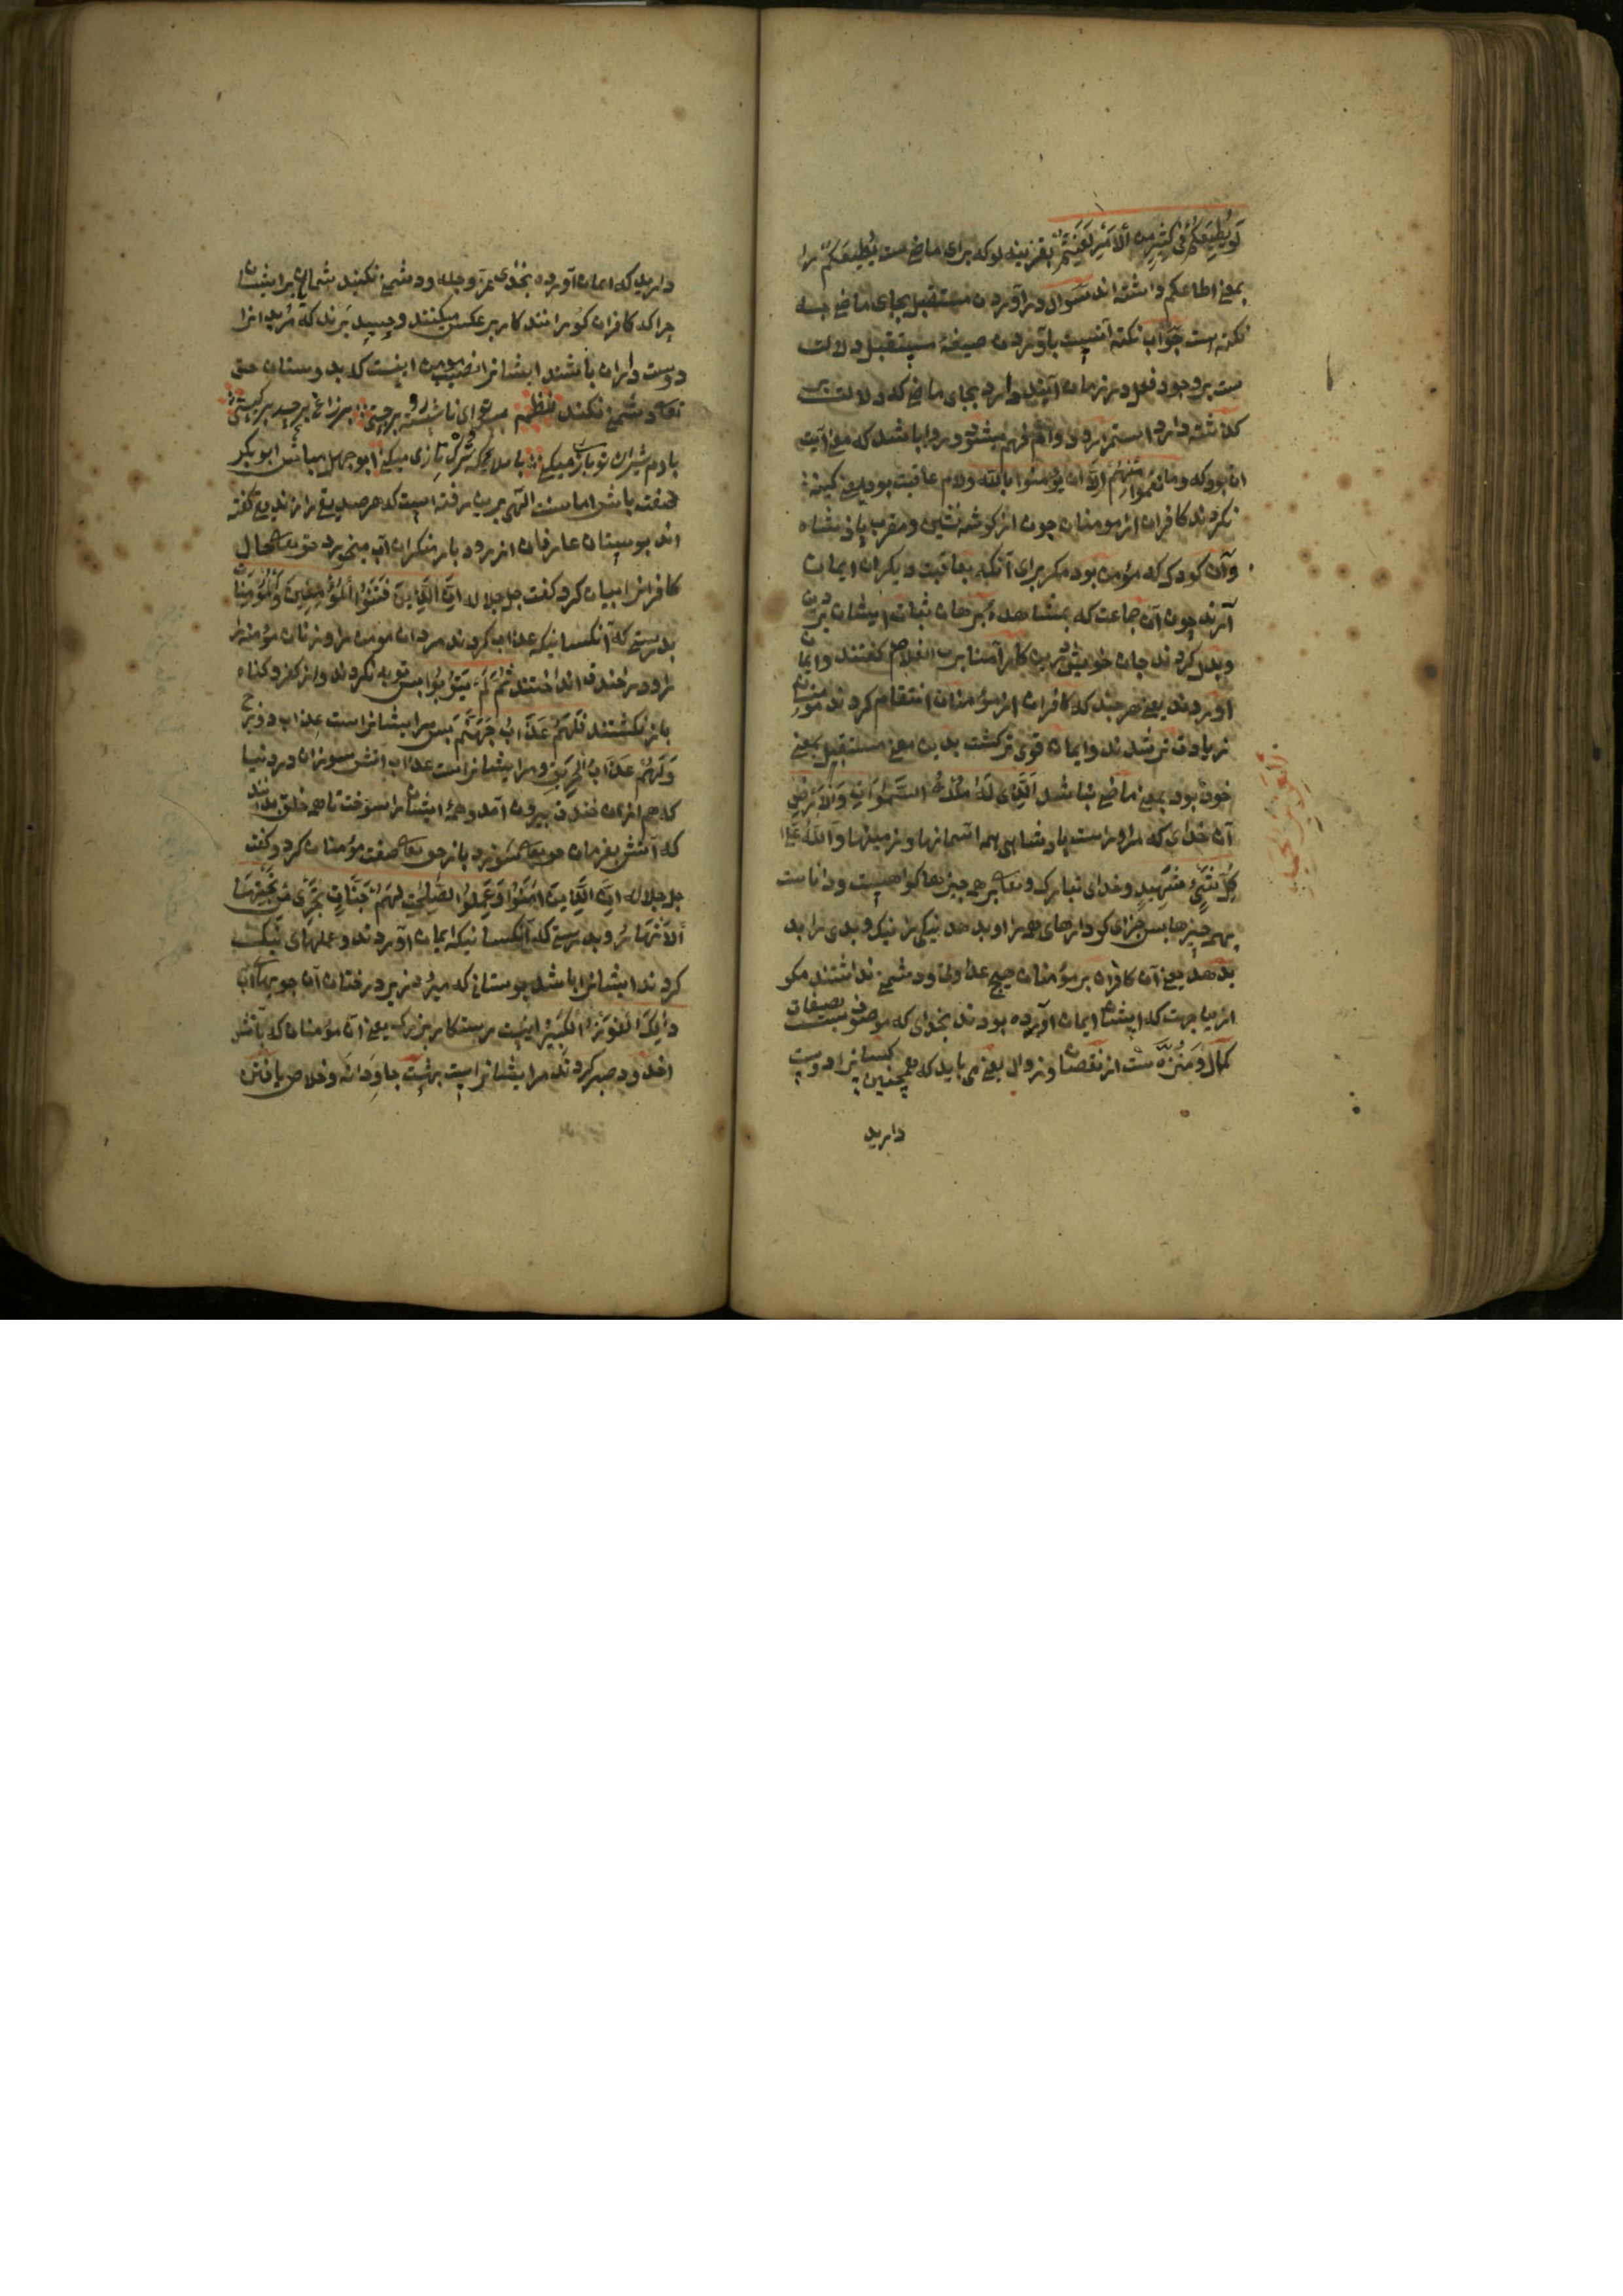 لَو يُطِيعُكُم فِي كَثِيرٍ مِنَ الأَمرِ لَعَنِتُّم بقرینه لو که برای ماضی ست یُطِیعُکُم را
بمعنی اطاعکم داشته اند سَوال در آوردن مستقبل بجای ماضی چه
نکته است جَوآب نکته آنست بآوردن صیغهٔ مستقبل دلالت
ست بر وجود فعل در زمان آینده دارد بجای ماضی که دلالت بر
گذشته دارد استمرار و دوام فهم میشود و روا باشد که معنی آیت
آن بود که وما نقموا منهم الّا ان یؤمنوا بالله ولام عاقبت بود یعنی کینه
نکردند کافران از مومنان چون از گوشه نشین و مقرب پادشاه
وآن کودک که مؤمن بود مگر برای آنکه بعاقبت دیگران ایمان
آرند چون آن جماعت که بمشاهدهٔ برهان ثبات ایشان درین
وبدل کردند جان خویش درین کار آمنا برب الغلام گفتند وایمان
آوردند یعنی هرچند که کافران از مؤمنان انتقام کردند مومنان
زیادت تر شدند وایمان قوی تر گشت بدین معنی مستقبل بمعنی
خود بود بمعنی ماضی نباشد اَلَّذِی لَهُ مُلْكُ السَّمٰوَاتِ وَالْاَرْضِ
آن خدای که مر او راست پادشاهی همه آسمانها وزمینها وَاللّٰهُ عَلیٰ
كُلِّ شَیْءٍ شَهِیدٍ وخدای تبارک وتعالی بر همه چیزها گواهست ودانا ست
بهمه چیزها پس جزای کردارهای همه را او بدهد نیکی را نیک وبدی را بد
بدهد یعنی آن کافران بر مؤمنان هیچ عداوتی ودشمنی نداشتند مگر
ازین جهت که ایشان ایمان آورده بودند بخدای که موصوف ست بصفات
کمال ومنزّه ست از نقصان وزوال یعنی می باید که همچنین کسانرا دوست
دارید
دارید که ایمان آورده بخدای عزّ وجله ودشمنی نکنند شمایان بر ایشان
چرا که کافران کورانند کار بر عکس میکنند
دوست داران باشند ایشانرا نصیب مومن اینست که بدوستان حق
تعالی دشمنی نکنند نظم
با دم شیران تو بازی میکنی با ملایک ترک تازی میکنی ابوجهل میباش ابو بکر
صفت باش اما سنت الهی برین رفته است که هر صدیق را زندیق گفته
اند بوستان عارفان از رود بار منکران آب میخورد حق تعالی حال
کافرانرا بیان کرد گفت جل جلاله اِنَّ الَّذِینَ فَتَنُوا الْمُؤْمِنِینَ وَالْمُؤْمِنَاتِ
بدرستی که آنکسانیکه عذاب کردند مردان مومن را وزنان مؤمنه را
را ودر خندق انداختند ثُمَّ لَمْ یَتُوبُوا پس توبه نکردند واز کفر وگناه
باز نگشتند فَلَهُمْ عَذَابُ جَهَنَّمَ پس مر ایشانراست عذاب دوزخ
وَلَهُمْ عَذَابُ الْحَرِیقِ ومر ایشانراست عذاب آتش سوزان در دنیا
که هم از آن خندق بیرون آمد وهمهٔ ایشان را سوخت تا همه خلق بدانند
که آتش بفرمان حق تعالی سوزد باز حق تعالی صفت مؤمنان کرد وگفت
جل جلاله اِنَّ الَّذِینَ اٰمَنُوا وَعَمِلُوا الصَّالِحَاتِ لَهُمْ جَنَّاتٌ تَجْرِی مِنْ تَحْتِهَا
الْاَنْهَارُ وبدرستی که آنکسانیکه ایمان آوردند وعملهای نیک
کردند ایشانرا باشد بوستانی که میرود زیر درختان آن جویهاآب
ذٰلِكَ الْفَوْزُ الْكَبِیرُ اینست رستگار بزرگ یعنی آن مؤمنان که بآتش
اخدود صبر کردند مر ایشانراست بهشت جاودانه وخلاص یافتن